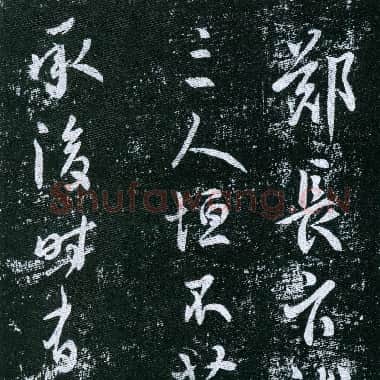 鄭長
三人恒不
承後時
Shufawang.cn